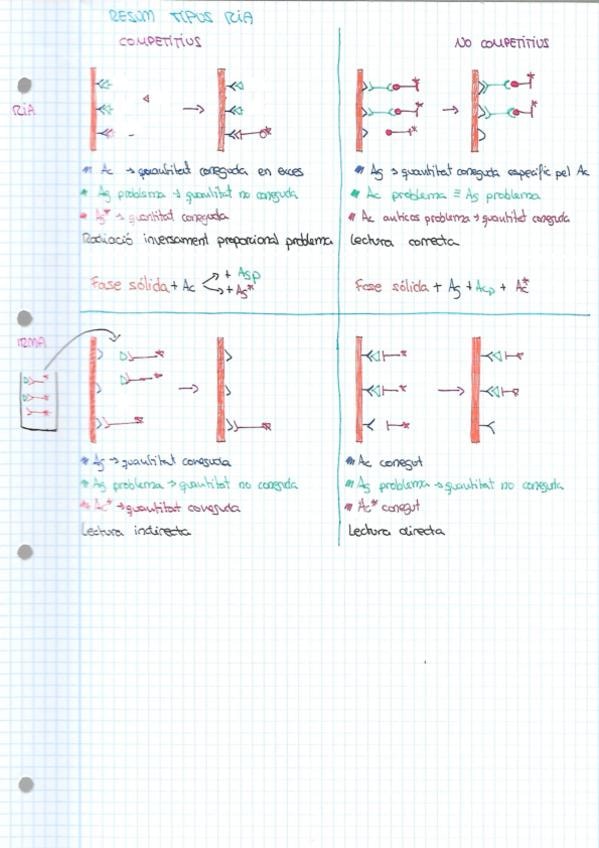 RESUM TIPUS RIA
COMPETITIUS
NO COMPETITIUS
RIA
Ac → quantitat coneguda en excés
Ag problema → quantitat no coneguda
Ag* → quantitat coneguda
Radiació inversament proporcional problema
Fase sòlida + Ac + Agp + Ag*
Ag → quantitat coneguda específic pel Ac
Ac problema = Ag problema
Ac anticos problema → quantitat coneguda
Lectura correcta
Fase sòlida + Ag + Acp + Ac*
IRMA
Ag → quantitat coneguda
Ag problema → quantitat no coneguda
Ac* → quantitat coneguda
Lectura indirecta
Ac conegut
Ag problema → quantitat no coneguda
Ac* conegut
Lectura directa